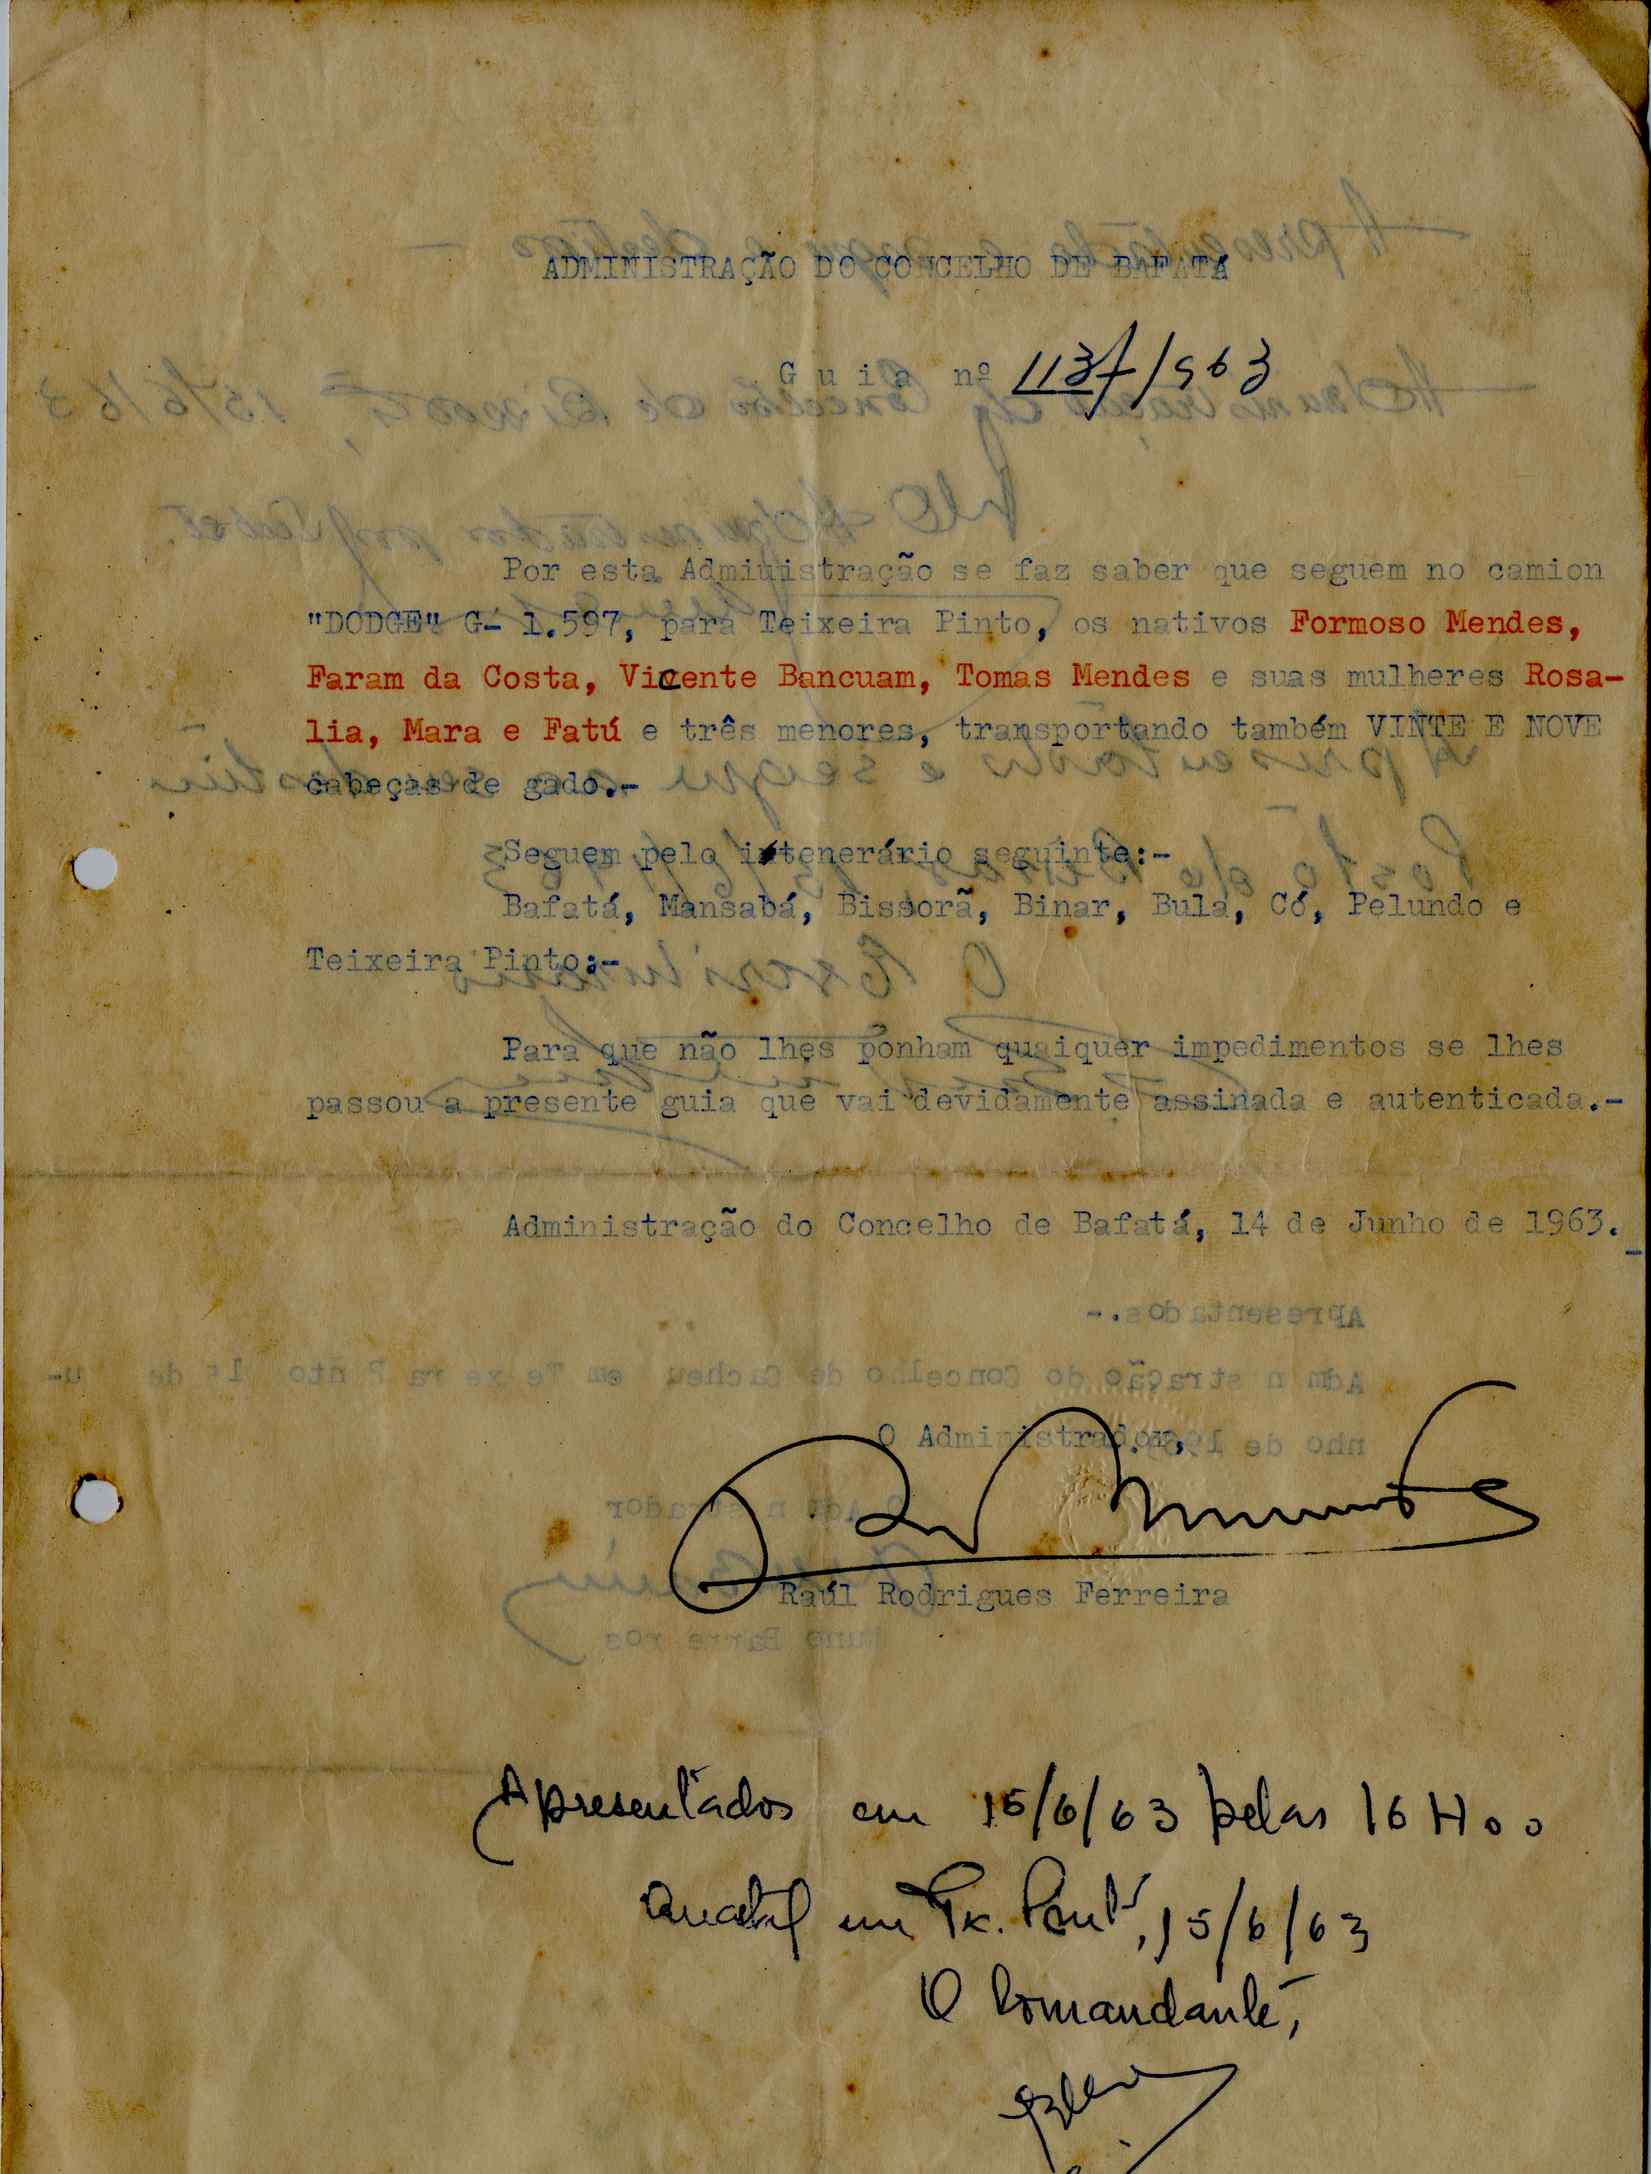 ADMINISTRAÇÃO DO CONCELHO DE BAFATÁ
Guia nº 1137/963
Por esta Administração se faz saber que seguem no camion
"DODGE" G- 1.597, para Teixeira Pinto, os nativos Formoso Mendes,
Faram da Costa, Vicente Bancuam, Tomas Mendes e suas mulheres Rosa-
lia, Mara e Fatú e três menores, transportando também VINTE E NOVE
cabeças de gado.-
Seguem pelo intenerário seguinte:-
Bafatá, Mansabá, Bissorã, Binar, Bula, Có, Pelundo e
Teixeira Pinto:-
Para que não lhes ponham quaiquer impedimentos se lhes
passou a presente guia que vai devidamente assinada e autenticada.-
Administração do Concelho de Bafatá, 14 de Junho de 1963.-
Apresentados.-
Administração do Concelho de Cacheu em Teixeira Pinto
O Administrador,
nho de
Raúl Rodrigues Ferreira
Apresentados em 15/6/63 pelas 16 H00
Quartel em Tx. Pinto, 15/6/63
O Comandante,